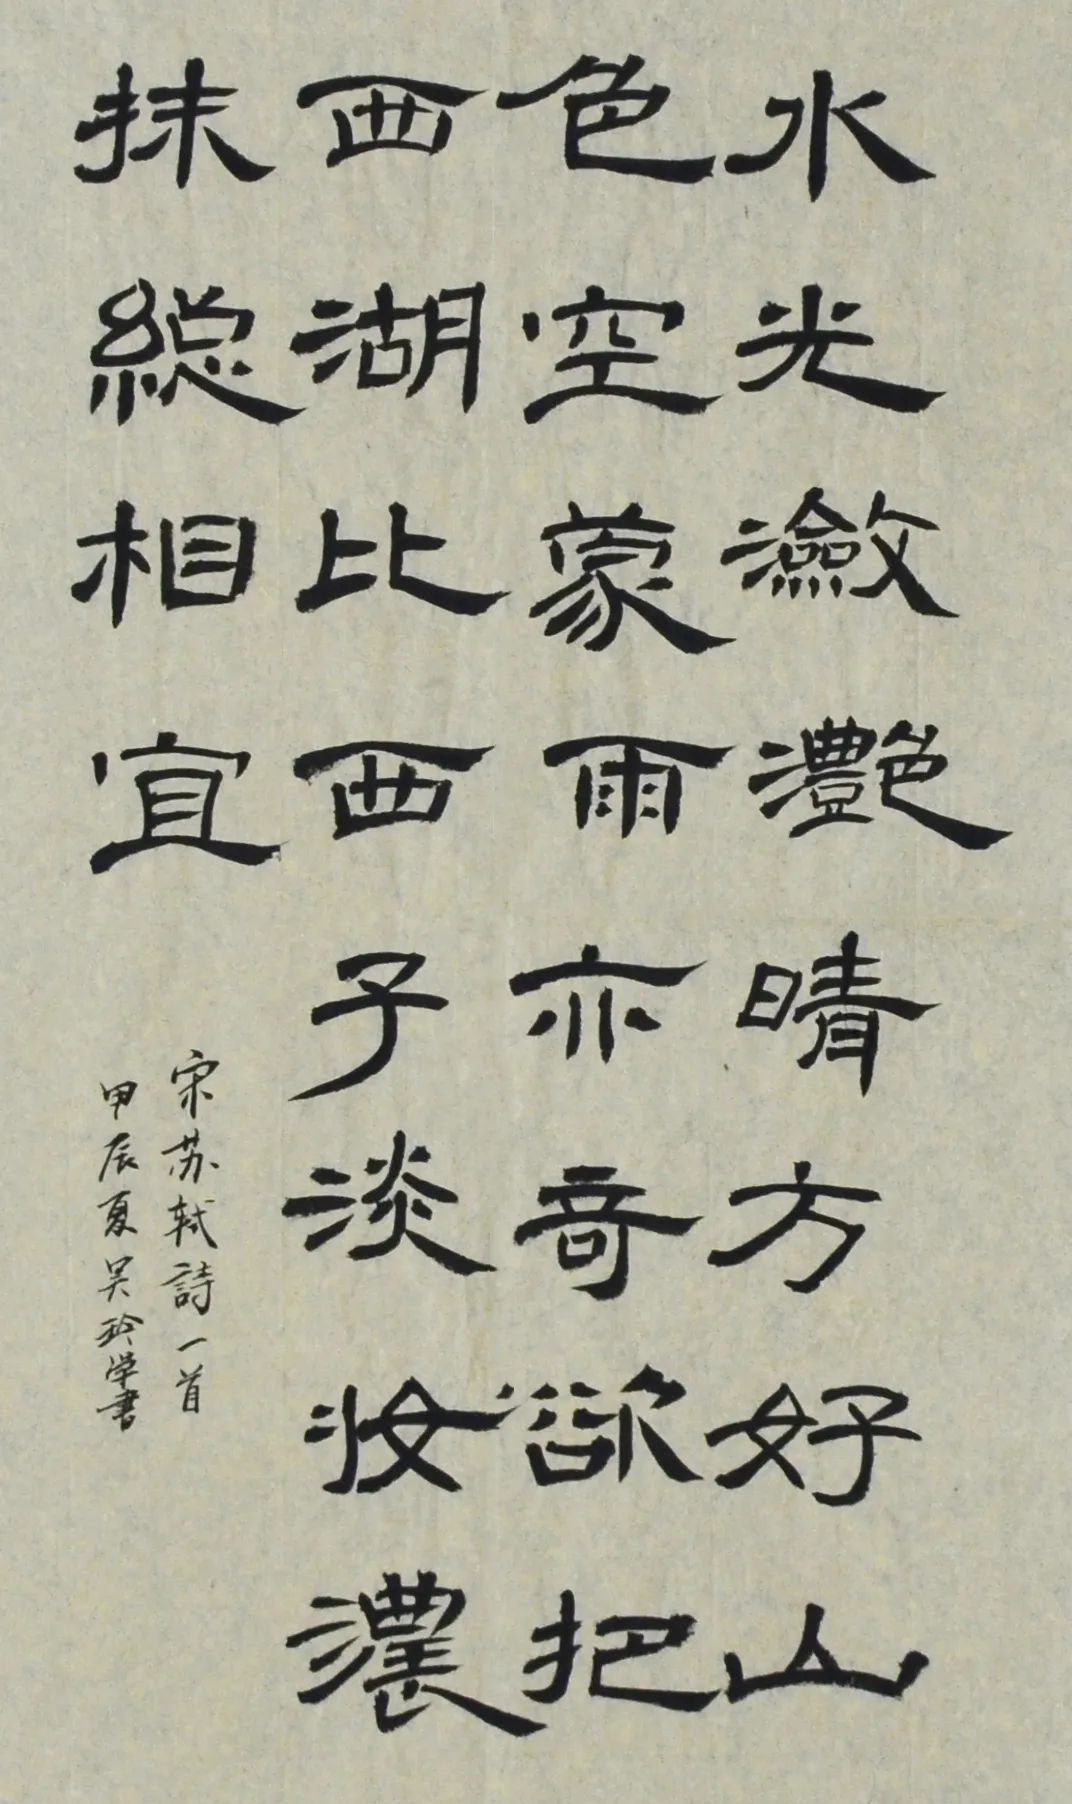 水光瀲灩晴方好山
色空蒙雨亦奇欲把
西湖比西子淡妝濃
抹総相宜
宋苏軾詩一首
甲辰夏吴玲学書